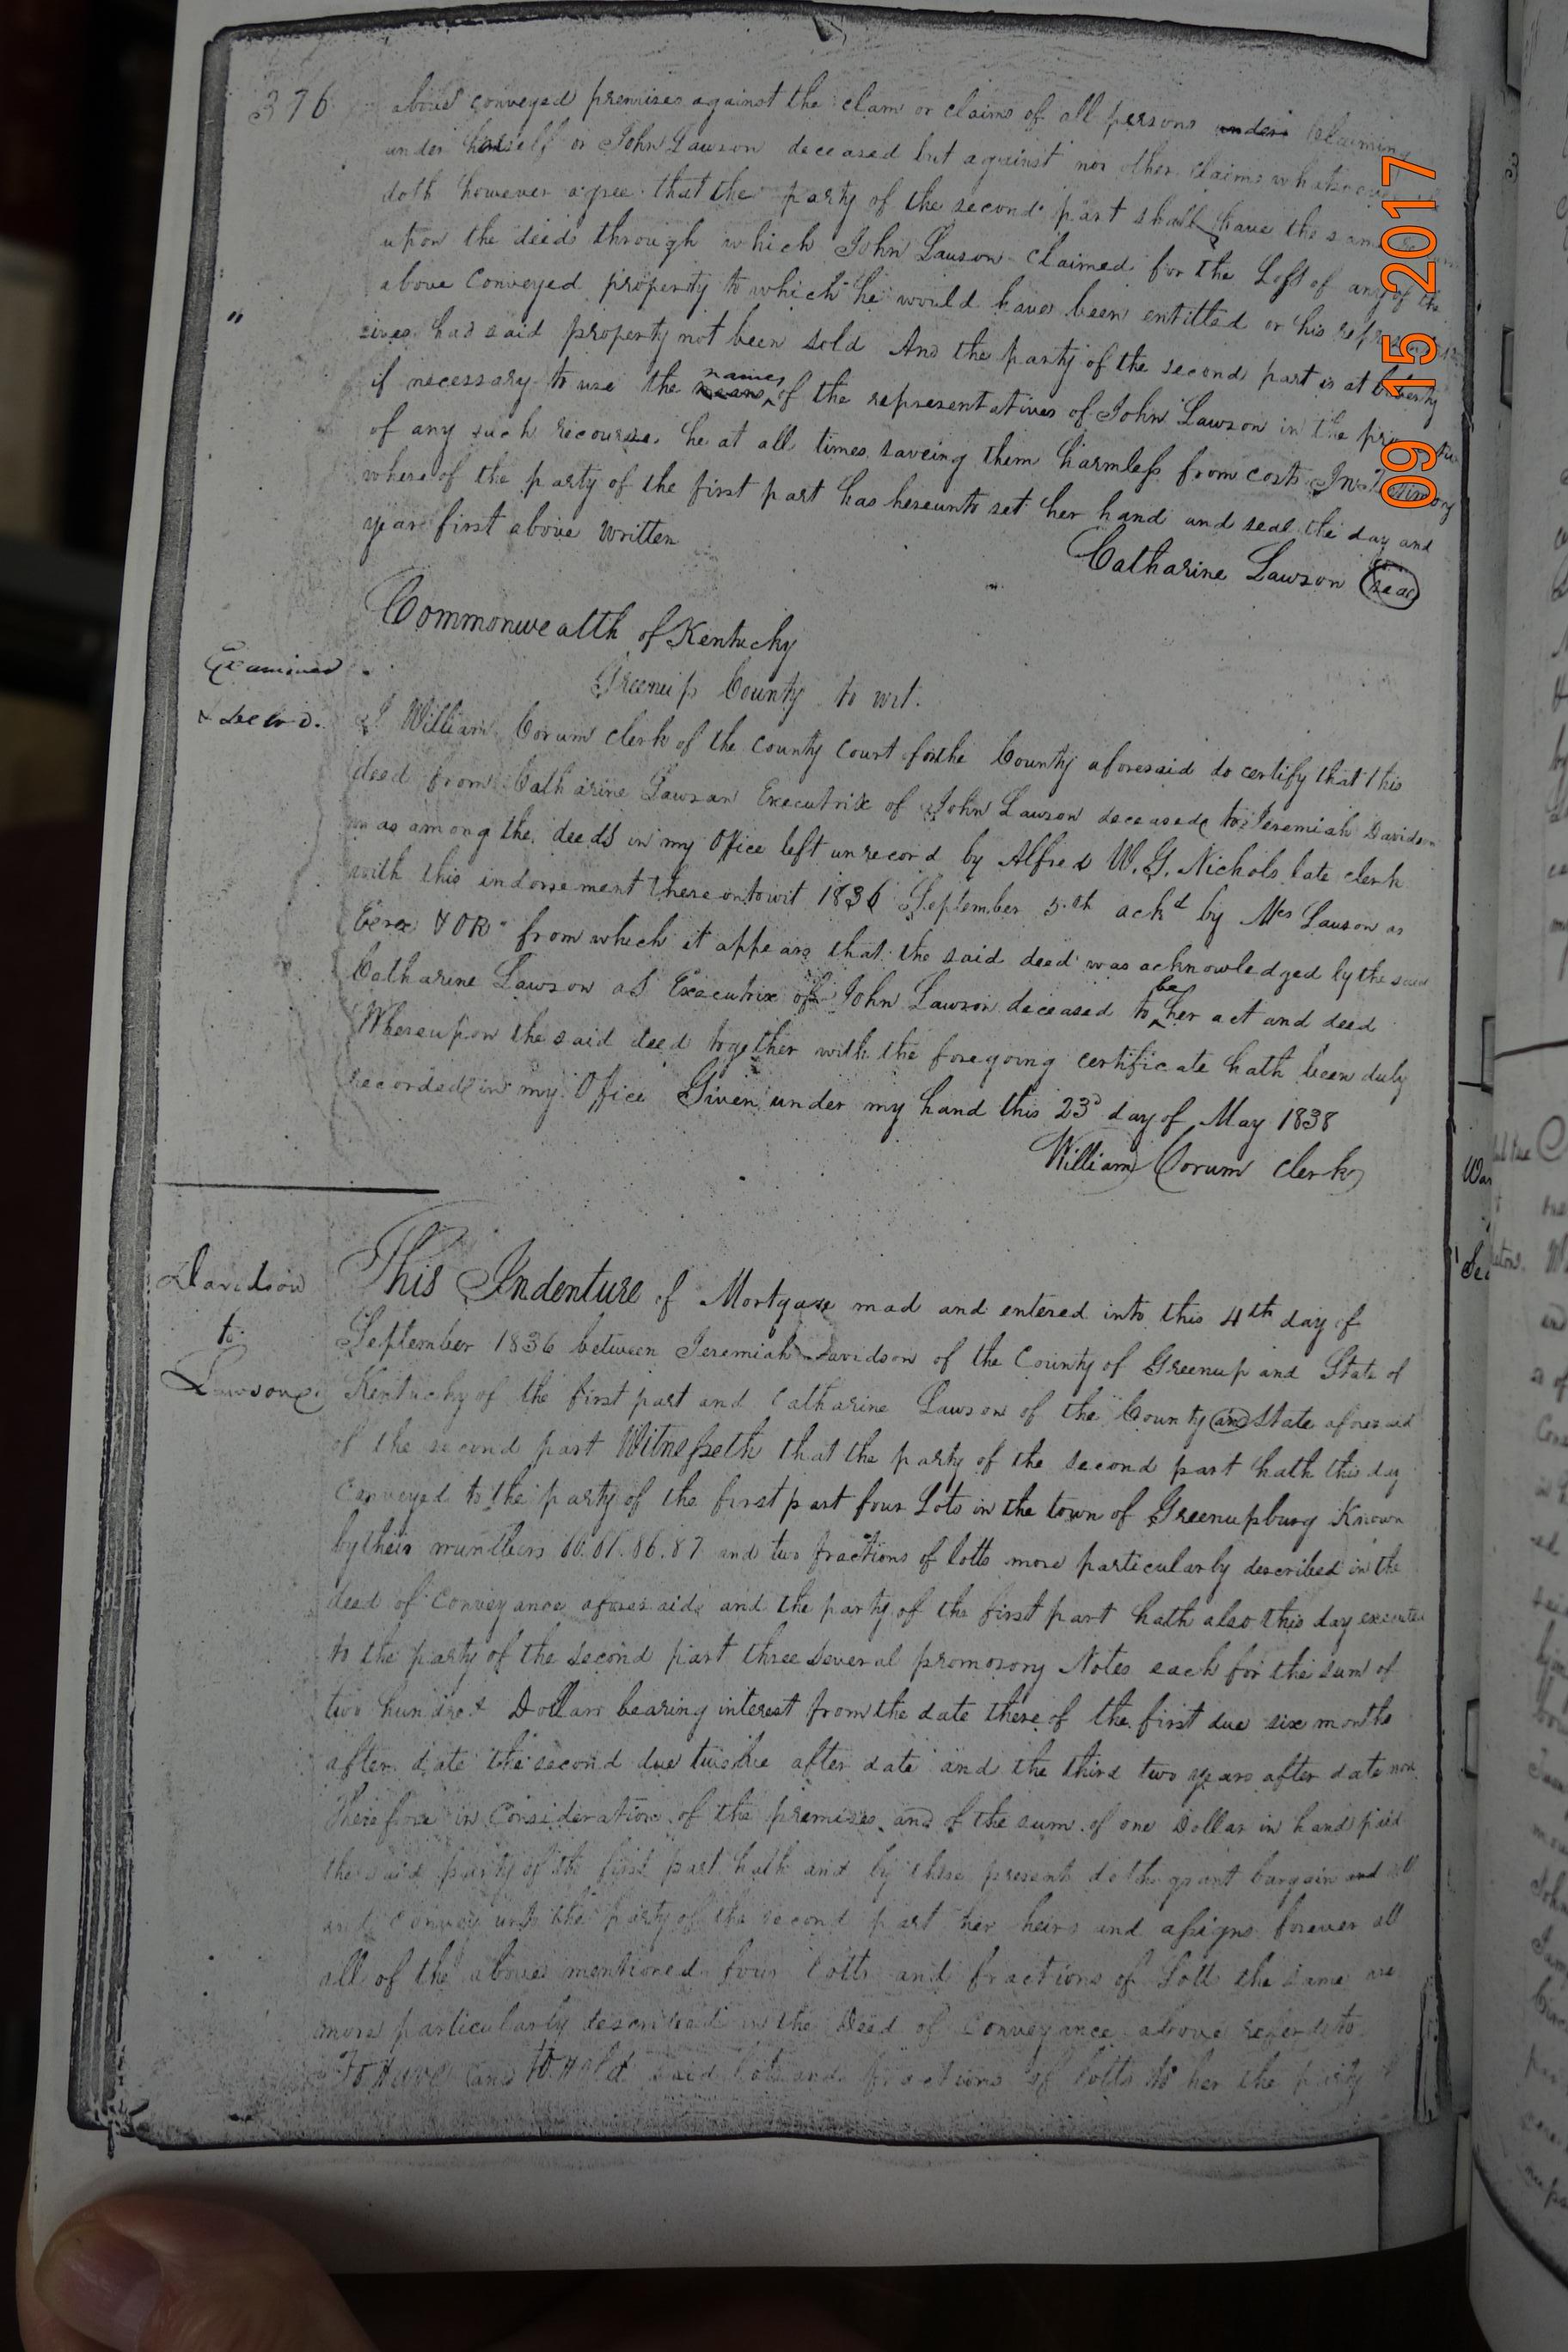 376
above conveyed premises against the clam or claims of all persons under claiming
under herself or John Lawson deceased but against nor other claims whatsoever
doth however agree that the party of the second part shall have the same
upon the deeds through which John Lawson claimed for the Loss of any of the
above conveyed property to which he would have been entitled or his
had said property not been sold And the party of the second part is at liberty
if necessary to use the names of the representatives of John Lawson in the
of any such recourse he at all times saveing them harmless from costs In Testimony
whereof the party of the first part has hereunto set her hand and seal the day and
year first above written
Catharine Lawson seal
Commonwealth of Kentucky
Greenup County to wit.
Examined
I William Corum clerk of the county court for the County aforesaid do certify that this
deed from Catharine Lawson Executrix of John Lawson deceased to Jeremiah Davidson
was among the deeds in my Office left unrecord by Alfred W. G. Nichols late clerk
with this indorsement thereon towit 1836 September 5th ackd by Mrs Lawson as
from which it appears that the said deed was acknowledged by the said
Catharine Lawson as Executrix of John Lawson deceased to be her act and deed
Whereupon the said deed together with the foregoing certificate hath been duly
recorded in my Office Given under my hand this 23d day of May 1838
William Corum clerk
Davidson
to
Lawson
This Indenture of Mortgage mad and entered into this 4th day of
September 1836 between Jeremiah Davidson of the County of Greenup and State of
Kentucky of the first part and Catharine Lawson of the County and State aforesaid
of the second part Witnesseth that the party of the second part hath this day
Conveyed to the party of the first part four Lots in the town of Greenupburg Known
by their 86. 87 and two fractions of lotts more particularly described in the
deed of Conveyance aforesaid and the party of the first part hath also this day executed
to the party of the second part three several promosory Notes each for the sum of
two hundred Dollars bearing interest from the date thereof the first due six months
after date the second due twelve after date and the third two years after date now
Therefore in Consideration of the premises and of the sum of one Dollar in hand paid
the said party of the first part hath and by these presents doth grant bargain and sell
and Convey unto the party of the second part her heirs and assigns forever all
all of the above mentioned four Lotts and fractions of Lotts the same are
more particularly described in the Deed of Conveyance above referd to
To Have and to Hold said Lots and fractions of lotts to her the party
09 15 2017